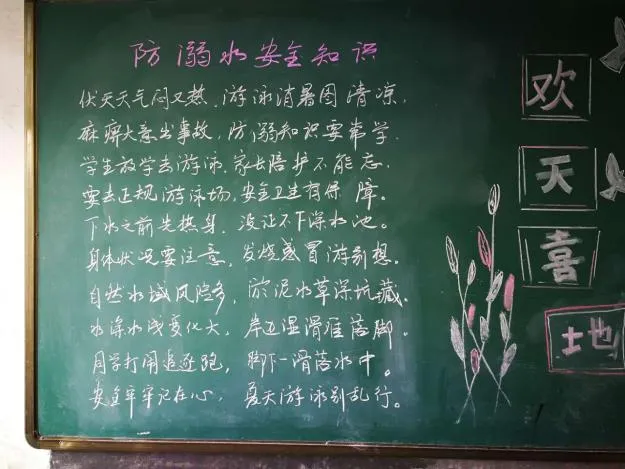 防溺水安全知识
伏天天气闷又热,游泳消暑图清凉,
麻痹大意出事故,防溺知识要常学.
学生放学去游泳,家长陪护不能忘.
要去正规游泳场,安全卫生有保障。
下水之前先热身,没证不下深水池。
身体状况要注意,发烧感冒游别想。
自然水域风险多,淤泥水草深坑藏.
水深水浅变化大,岸边湿滑难落脚。
同学打闹追逐跑,脚下一滑落水中。
安全牢牢记在心,夏天游泳别乱行。
欢
天
喜
地